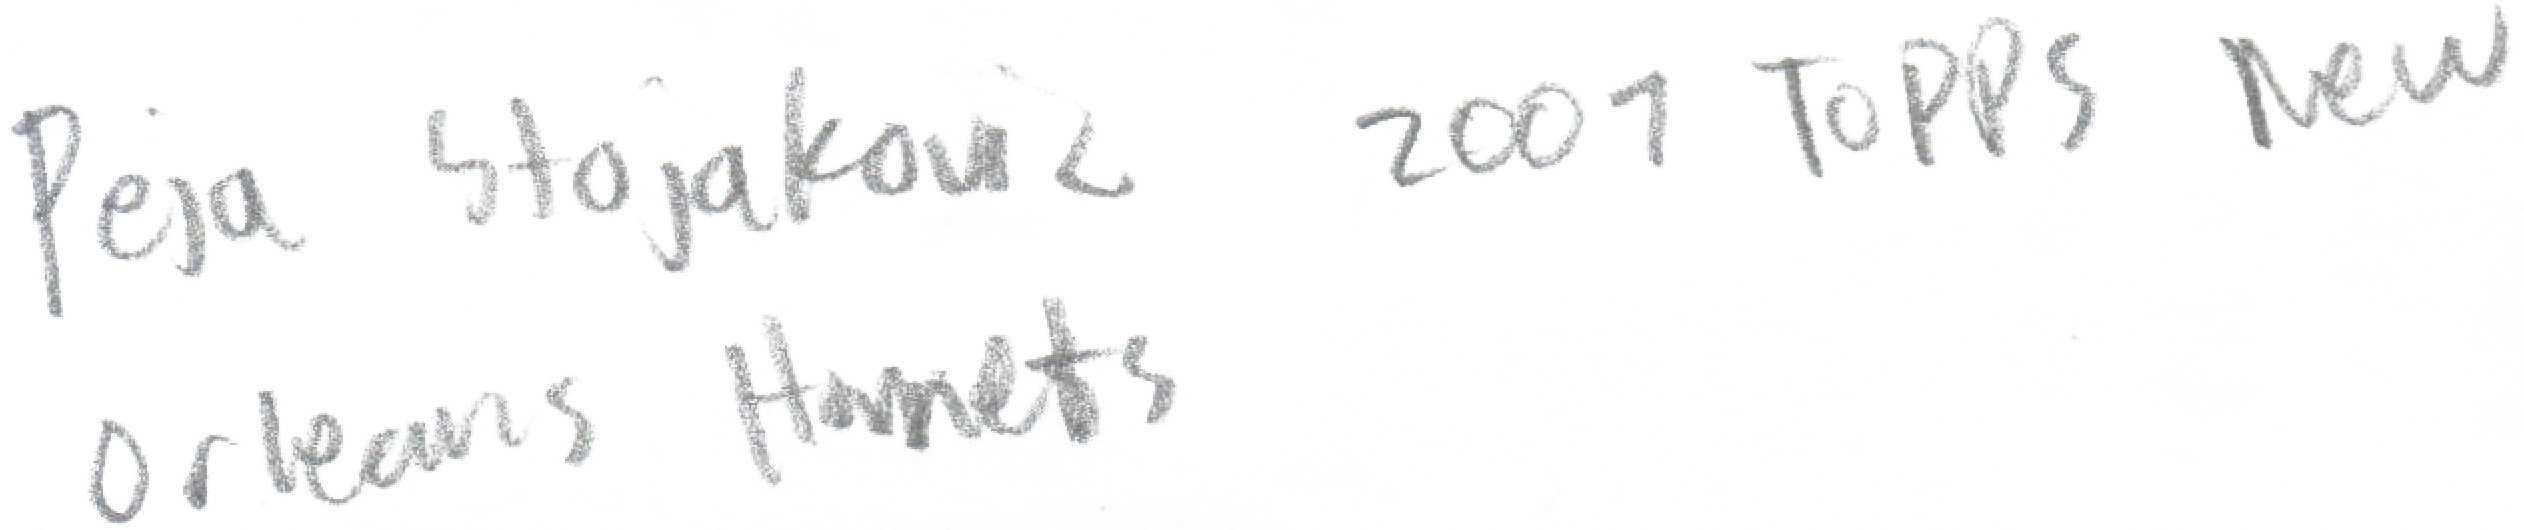 Peja Stojakovic 2007 Topps New
Orleans Hornets